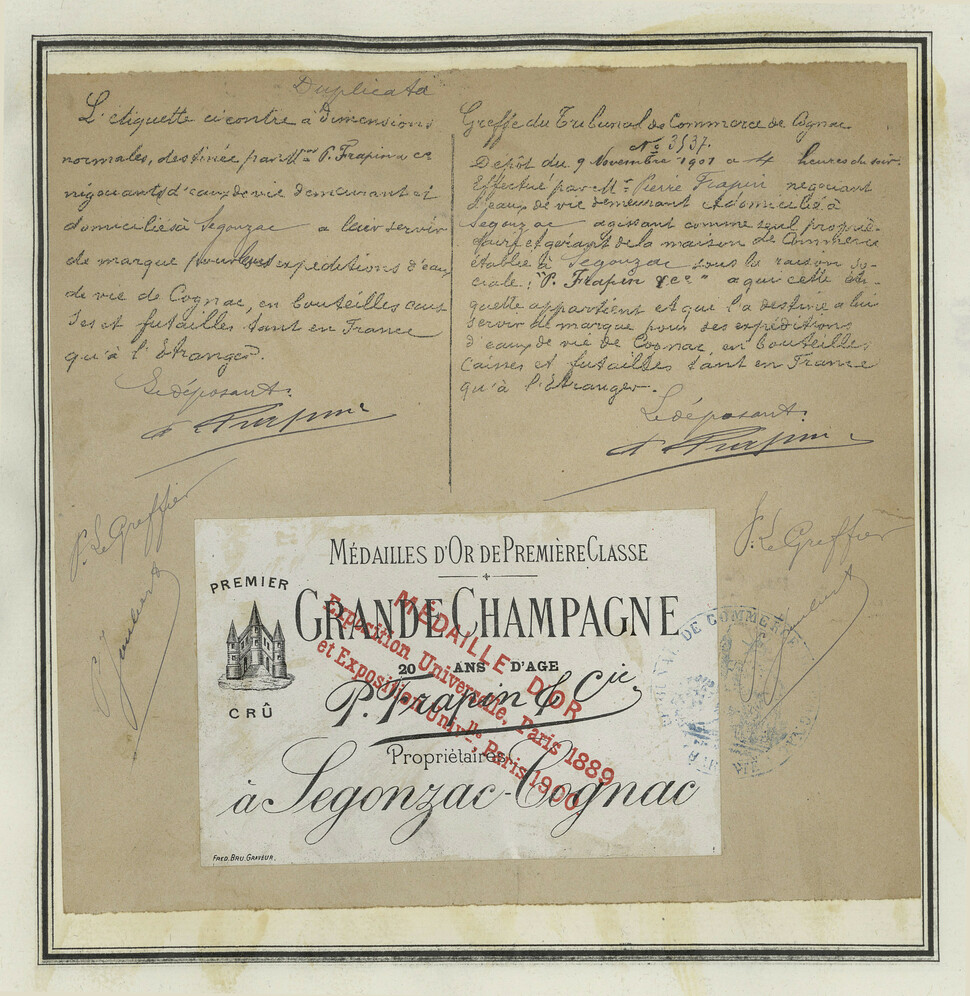 Duplicata
L'étiquette ci contre à dimensions
normales, destinée par Mrs P. Frapin & Cie
négociants d'eaux de vie demeurant et
domiciliés à Segonzac a leur servir
de marque pour leurs expéditions d'eaux
de vie de Cognac, en bouteilles cais
ses et futailles, tant en France
qu'à l'Etranger.
Le déposant.
P. Frapin
P. Le Greffier
Greffe du Tribunal de Commerce de Cognac
No 3537.
Dépôt du 9 Novembre 1901 a 4 heures du soir.
Effectué par Mr Pierre Frapin négociant
d'eaux de vie demeurant et domicilié à
Segonzac agissant comme seul proprié-
taire et gérant de la maison de Commerce
établie à Segonzac sous la raison so-
ciale: "P. Frapin & Cie" a qui cette éti-
quette appartient et que l'a destine a lui
servir de marque pour ses expéditions
d'eaux de vie de Cognac, en bouteilles
caisses et futailles tant en France
qu'à l'étranger.
Le déposant.
P. Frapin
P. Le Greffier
MÉDAILLES D'OR DE PREMIÈRE CLASSE
PREMIER
CRÛ
GRANDE CHAMPAGNE
20 ANS D'AGE
P. Frapin & Cie
Propriétaires
à Segonzac-Cognac
FRED. BRU. GRAVEUR.
MÉDAILLE D'OR
Exposition Universelle, Paris 1889
et Exposition Univlle, Paris 1900
DE COMMERCE